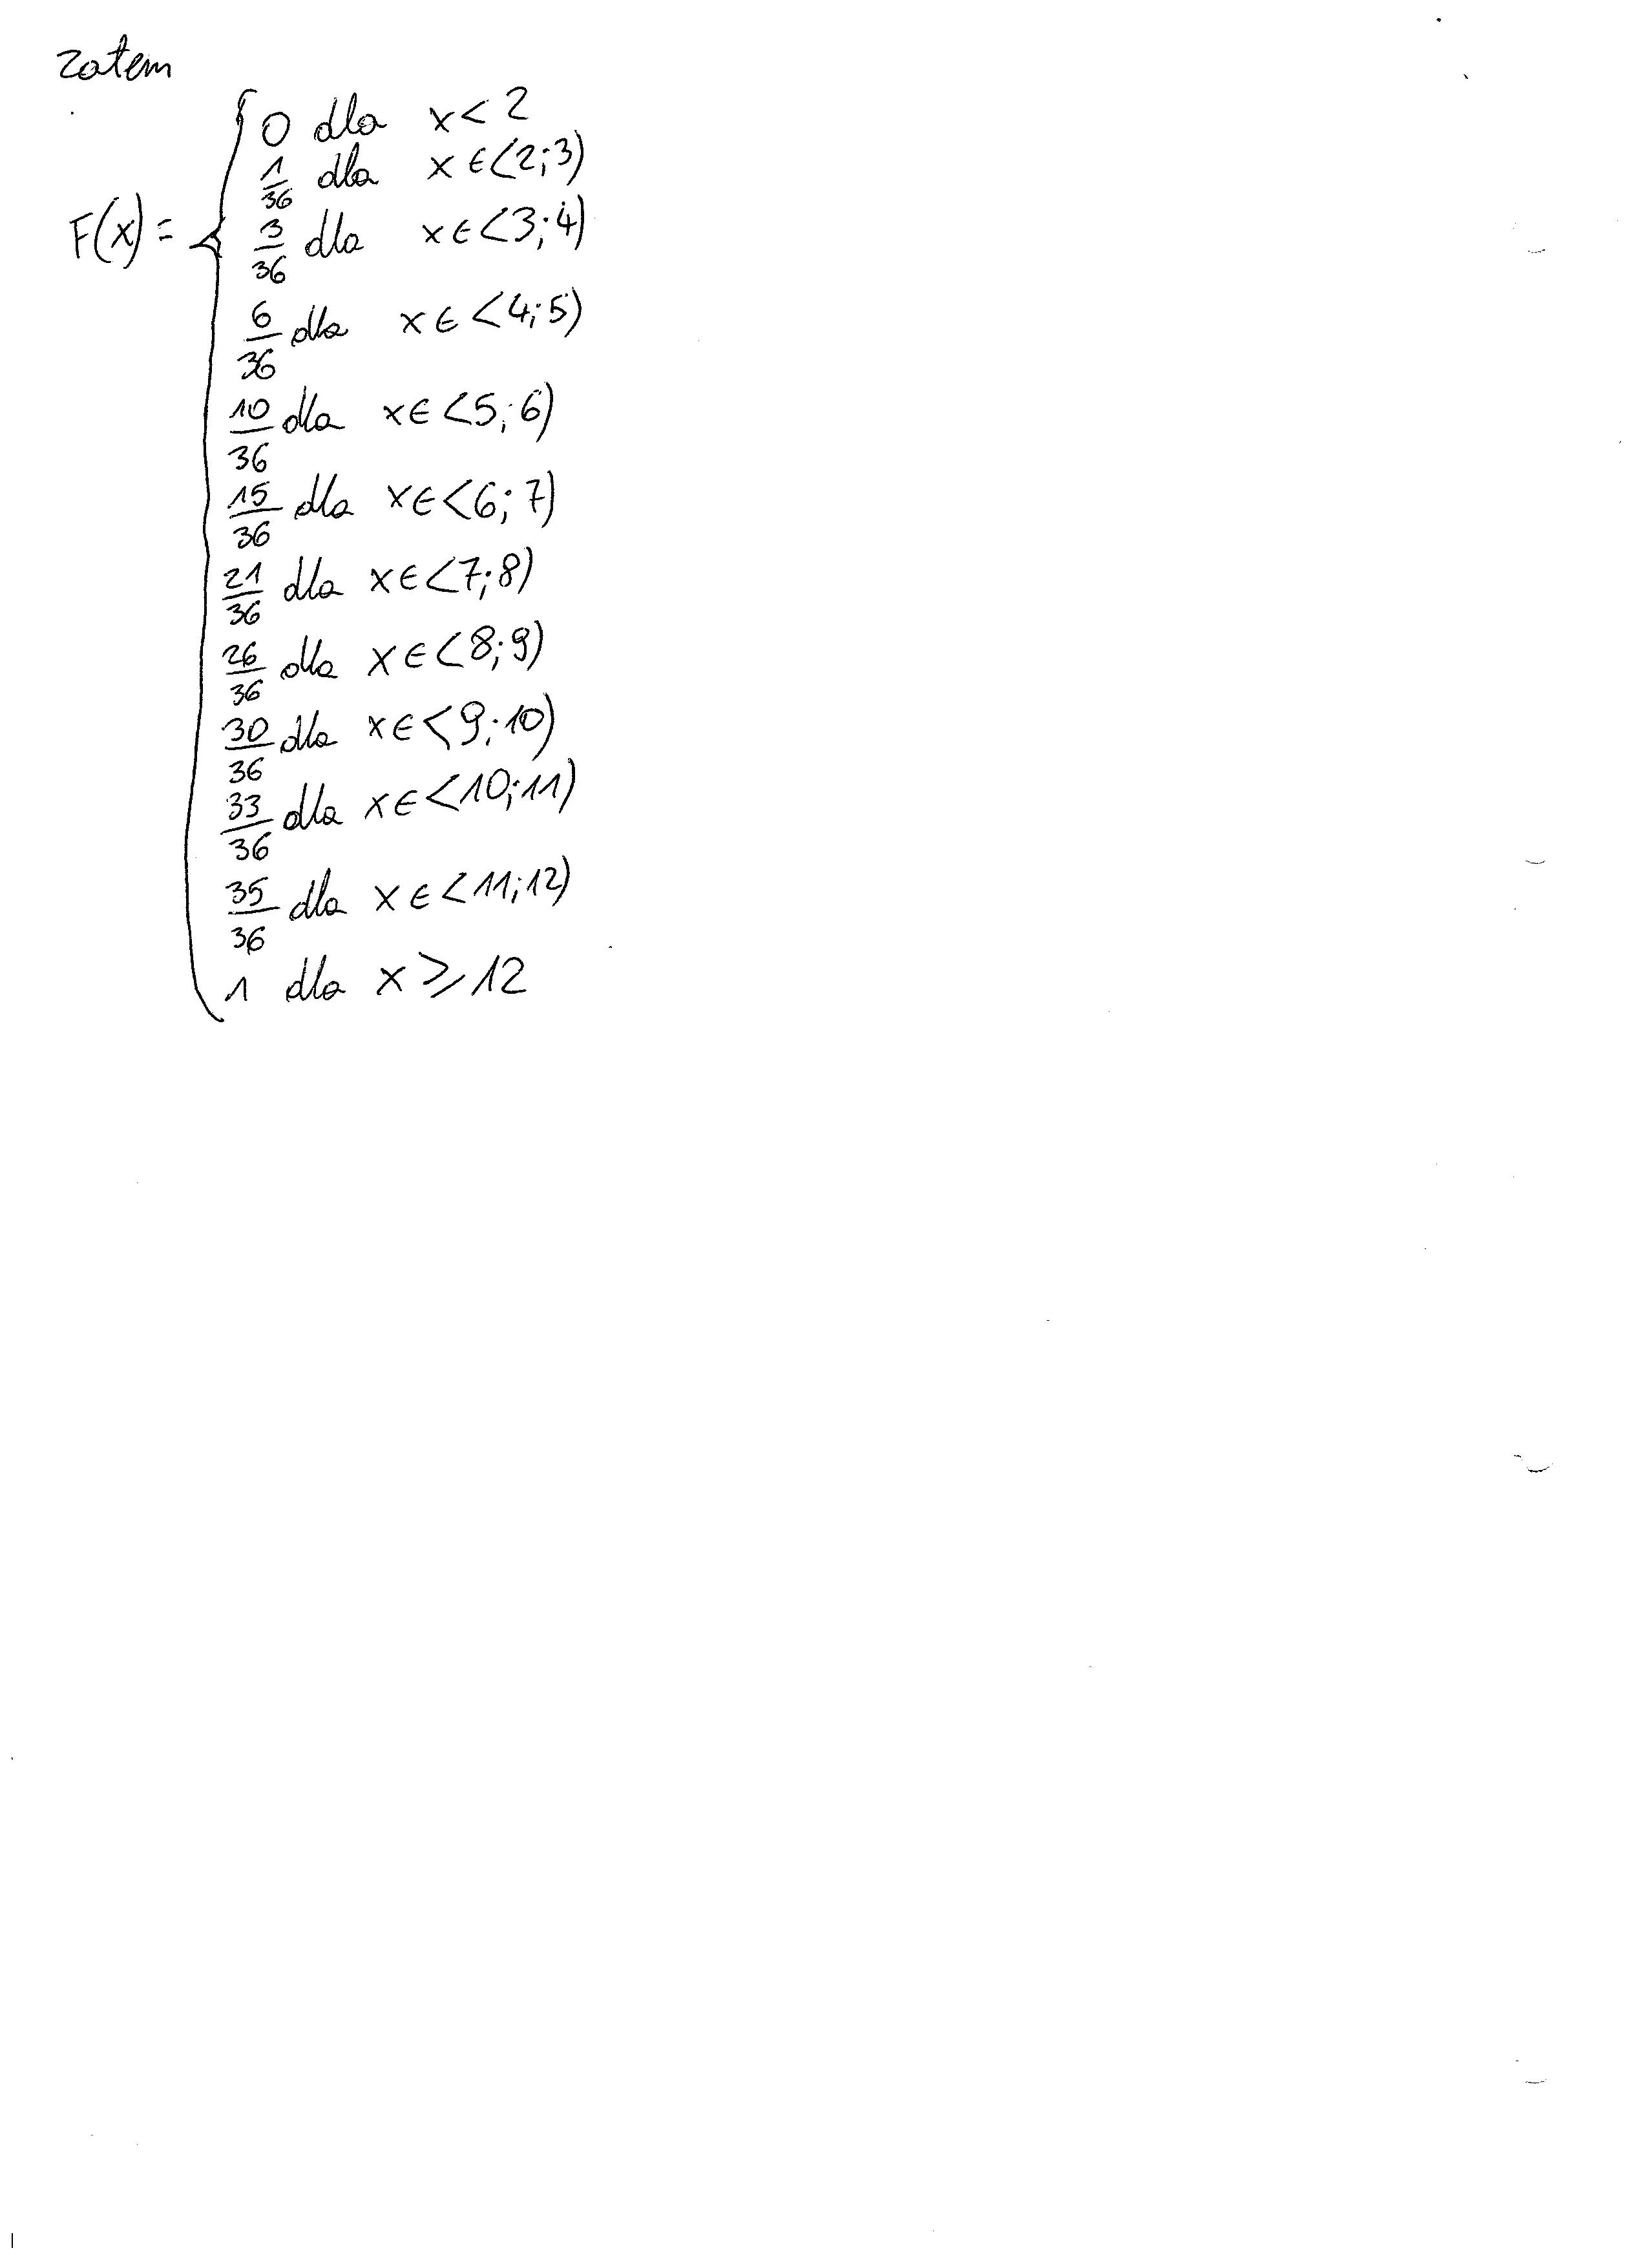 zatem
0 dla x < 2
1/36 dla x ∈ <2;3)
F(x) = { 3/36 dla x ∈ <3;4)
6/36 dla x ∈ <4;5)
10/36 dla x ∈ <5;6)
15/36 dla x ∈ <6;7)
21/36 dla x ∈ <7;8)
26/36 dla x ∈ <8;9)
30/36 dla x ∈ <9;10)
33/36 dla x ∈ <10;11)
35/36 dla x ∈ <11;12)
1 dla x ⩾ 12